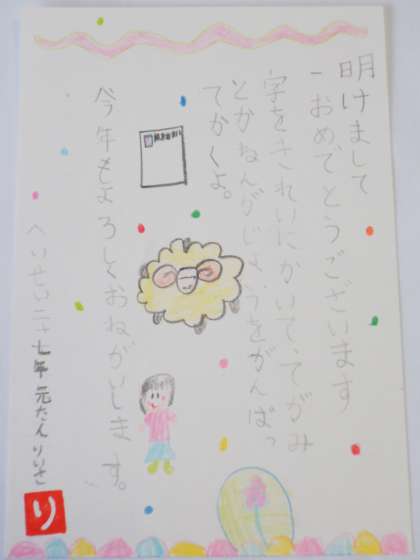 明けまして
おめでとうございます
字をきれいにかいて、てがみ
とかねんがじょうをがんばっ
てかくよ。
今年もよろしくおねがいします。
へいせい二十七年元たんりいさ
り